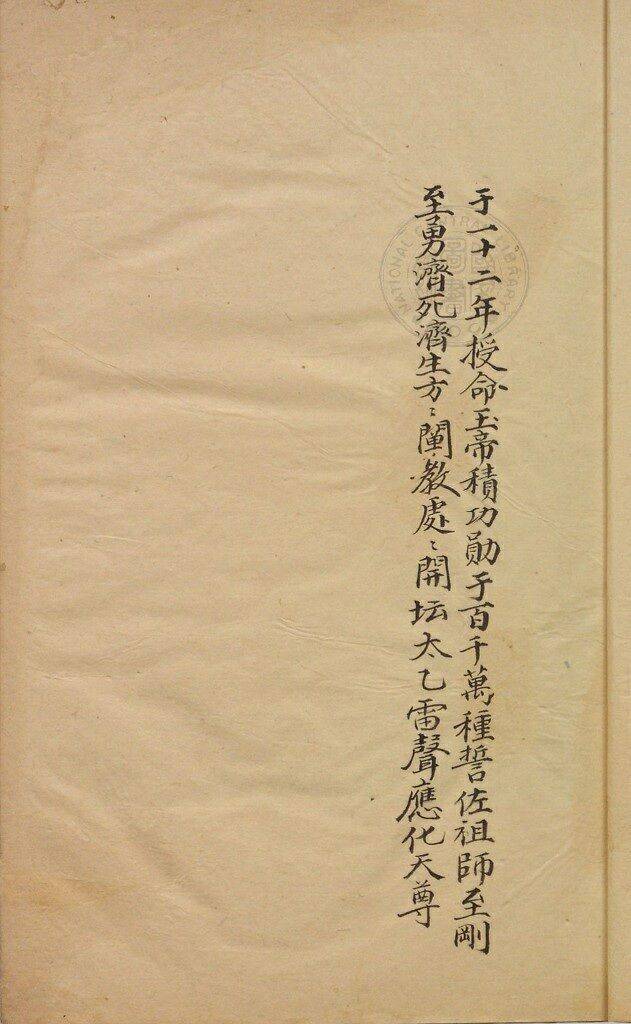 于一十二年授命玉帝積功勛于百千萬種誓佐祖師至剛
至勇濟死濟生方〻闡教處〻開坛太乙雷聲應化天尊
NATIONAL CENTRAL LIBRARY